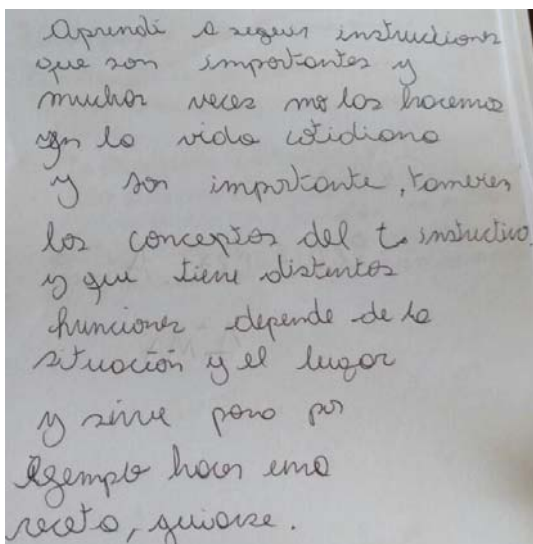 Aprendi a seguir instrucciones
que son importantes y
muchas veces no las hacemos
en la vida cotidiana
y son importante, tameien
los conceptos del t. instructivo
y que tiene distintos
funciones depende de la
situación y el lugar
y sirve para por
ejemplo hacer una
receta, guiarse.